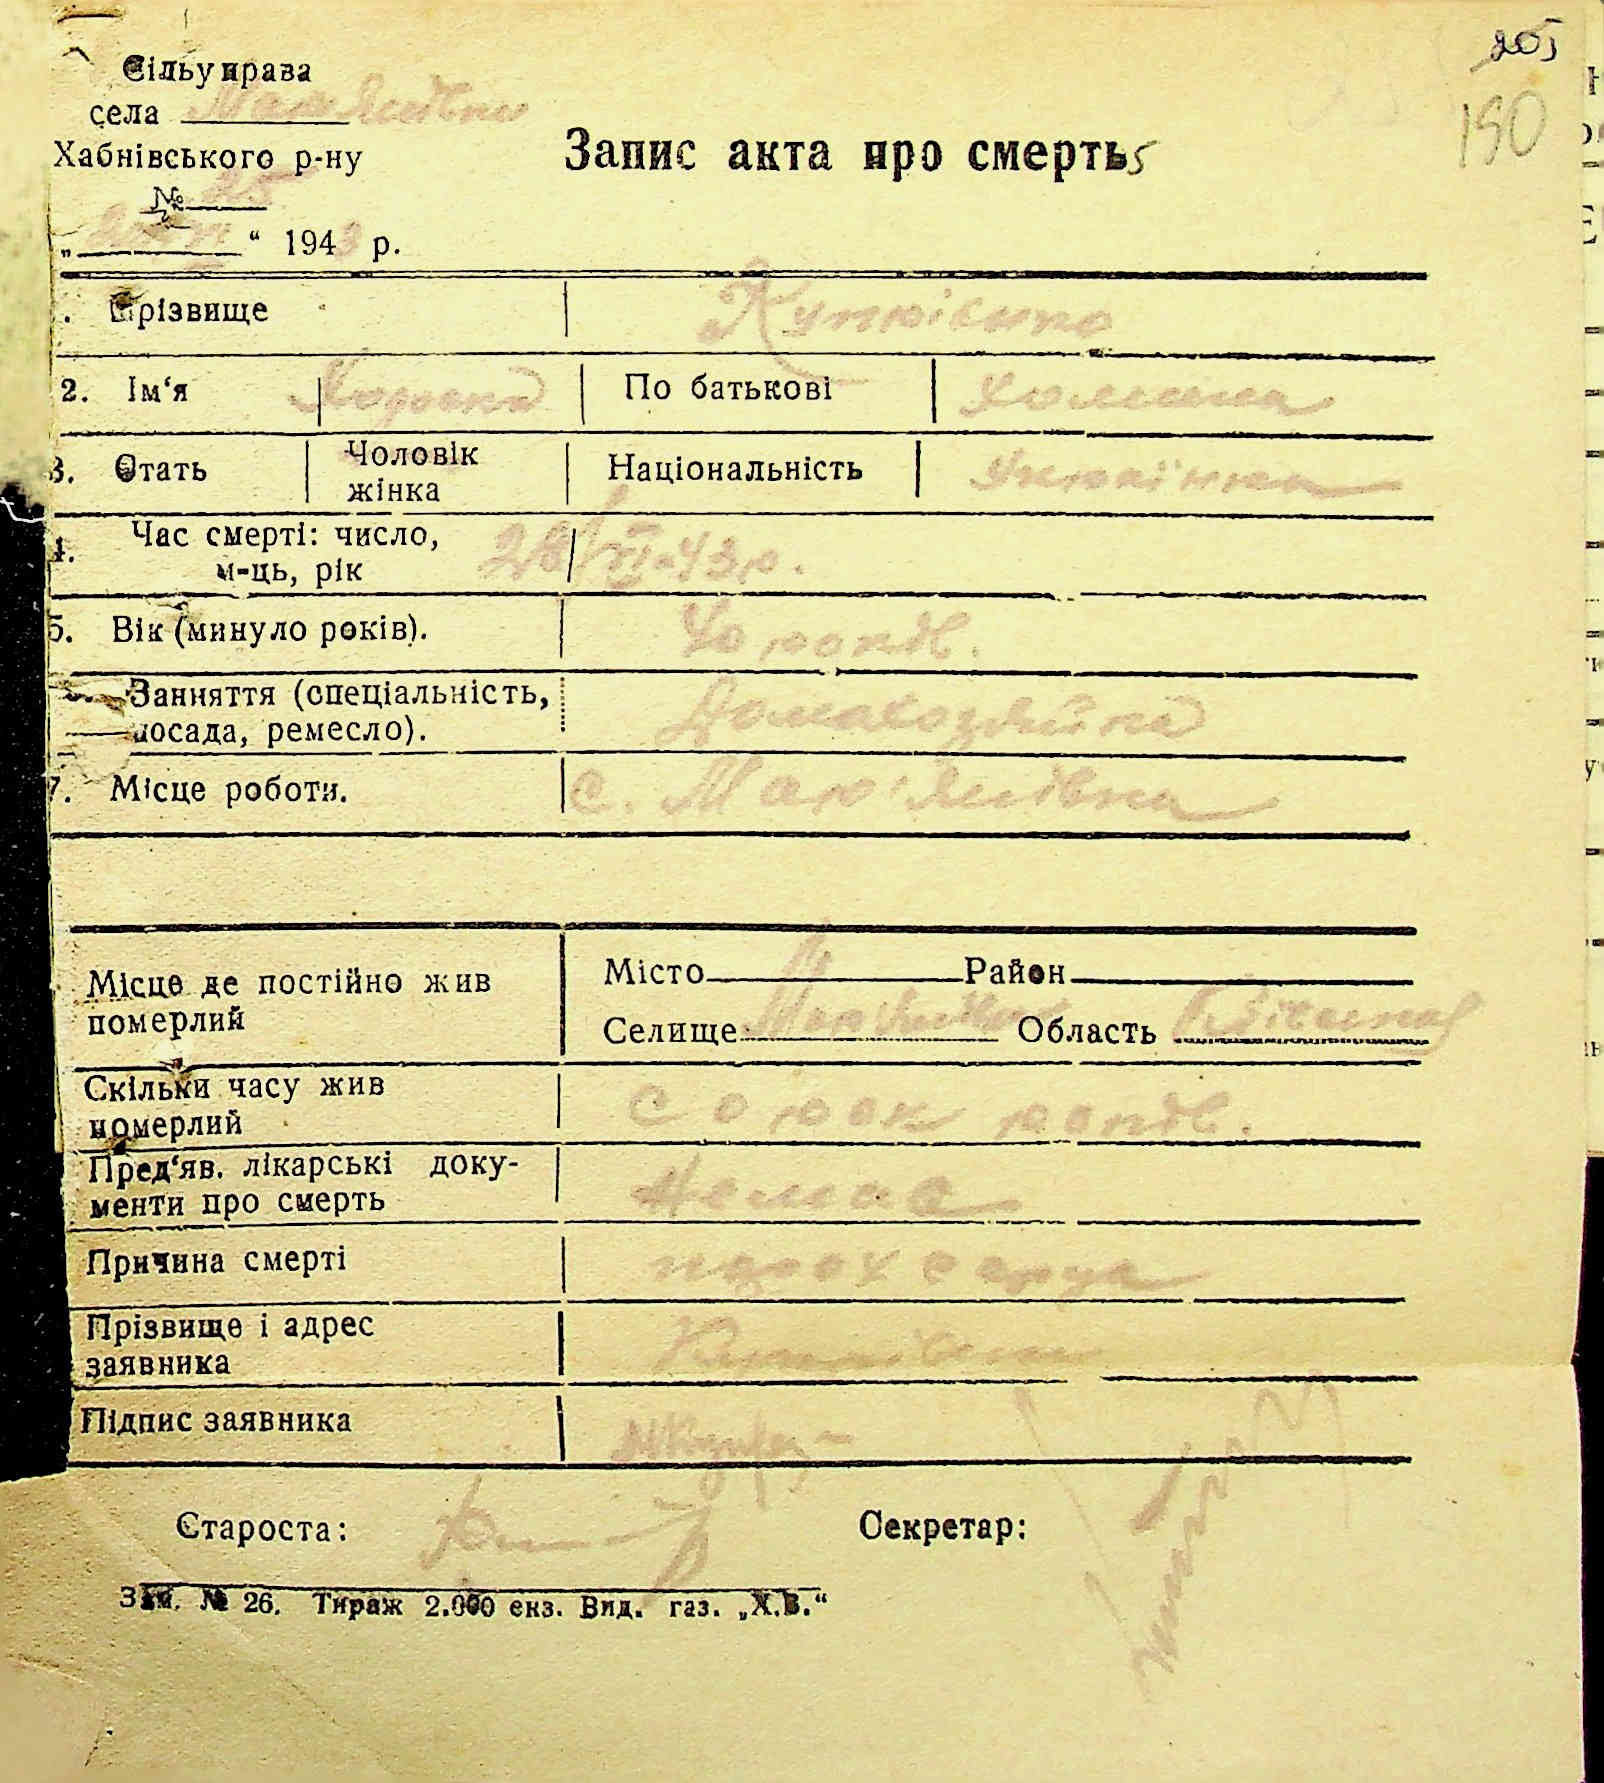 205
190
Сільуправа
села Мар'янівки
Хабнівського р-ну
Запис акта про смерть
№ 25
„ “ 1943 р.
Прізвище
2. Ім‘я По батькові Хомівна
3. Стать Чоловік жінка Національність Українка
4. Час смерті: число, м-ць, рік 28/VI-43р.
5. Вік (минуло років). 40 років.
Заняття (спеціальність, посада, ремесло). Домахозяйка
7. Місце роботи. с. Мар'янівка
Місце де постійно жив померлий
Місто Район
Селище Мар'янівка Область Київська
Скільки часу жив померлий сорок років.
Пред‘яв. лікарські документи про смерть немає
Причина смерті порох серця
Прізвище і адрес заявника
Підпис заявника
Староста: Секретар:
Зам. № 26. Тираж 2.000 екз. Вид. газ. „Х.В.“